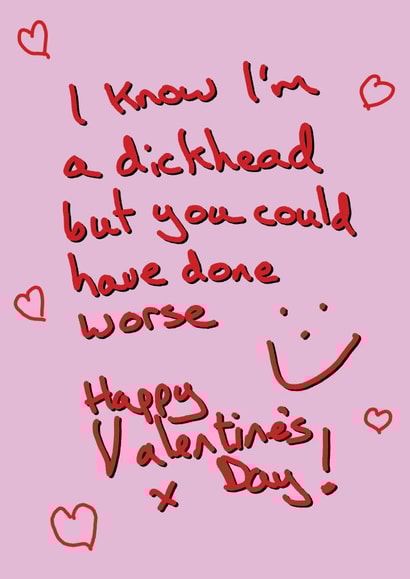 I know I'm
a dickhead
but you could
have done
worse
Happy
Valentine's
x Day!